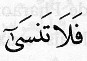 فَلَا تَنسَىٰٓ